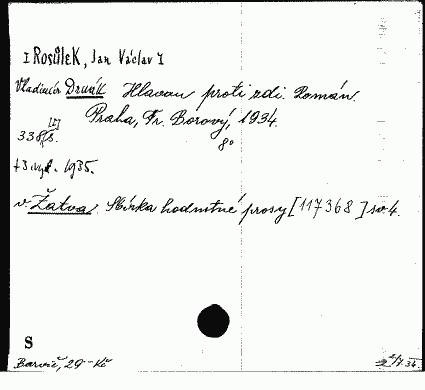 [Rosůlek, Jan Václav]
Vladimír Drnák Hlavou proti zdi. Román.
Praha, Fr. Borový, 1934.
338 [I] s. 8°
+ 3. vyd. 1935.
v. Žatva. Sbírka hodnotné prosy [117368] sv. 4.
S
Barvič, 29.- Kč